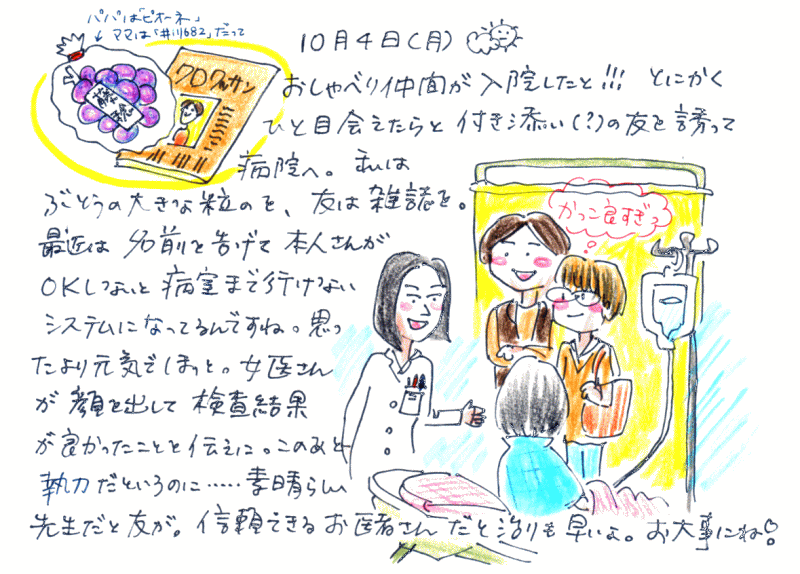 パパは「ピオーネ」
ママは「井川682」だって
10月4日(月)
クロワッサン
おしゃべり仲間が入院したと!!! とにかく
ひと目会えたらと付き添い(?)の友を誘って
病院へ。私は
ぶどうの大きな粒のを、友は雑誌を。
最近は名前を告げて本人さんが
OKしないと病室まで行けない
システムになってるんですね。思っ
たより元気でほっと。女医さん
が顔を出して検査結果
が良かったことを伝えに。このあと
執刀だというのに……素晴らしい
先生だと友が。信頼できるお医者さんだと治りも早いよ。お大事にね!
かっこ良すぎっ